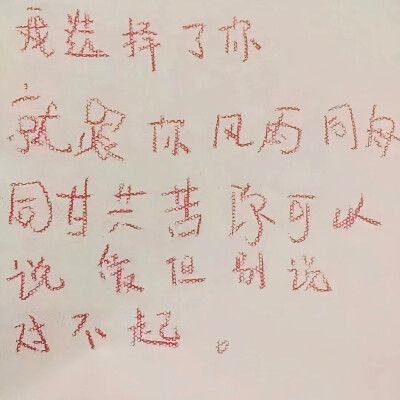 我选择了你
就跟你风雨同舟
同甘共苦你可以
说但别说
不起。